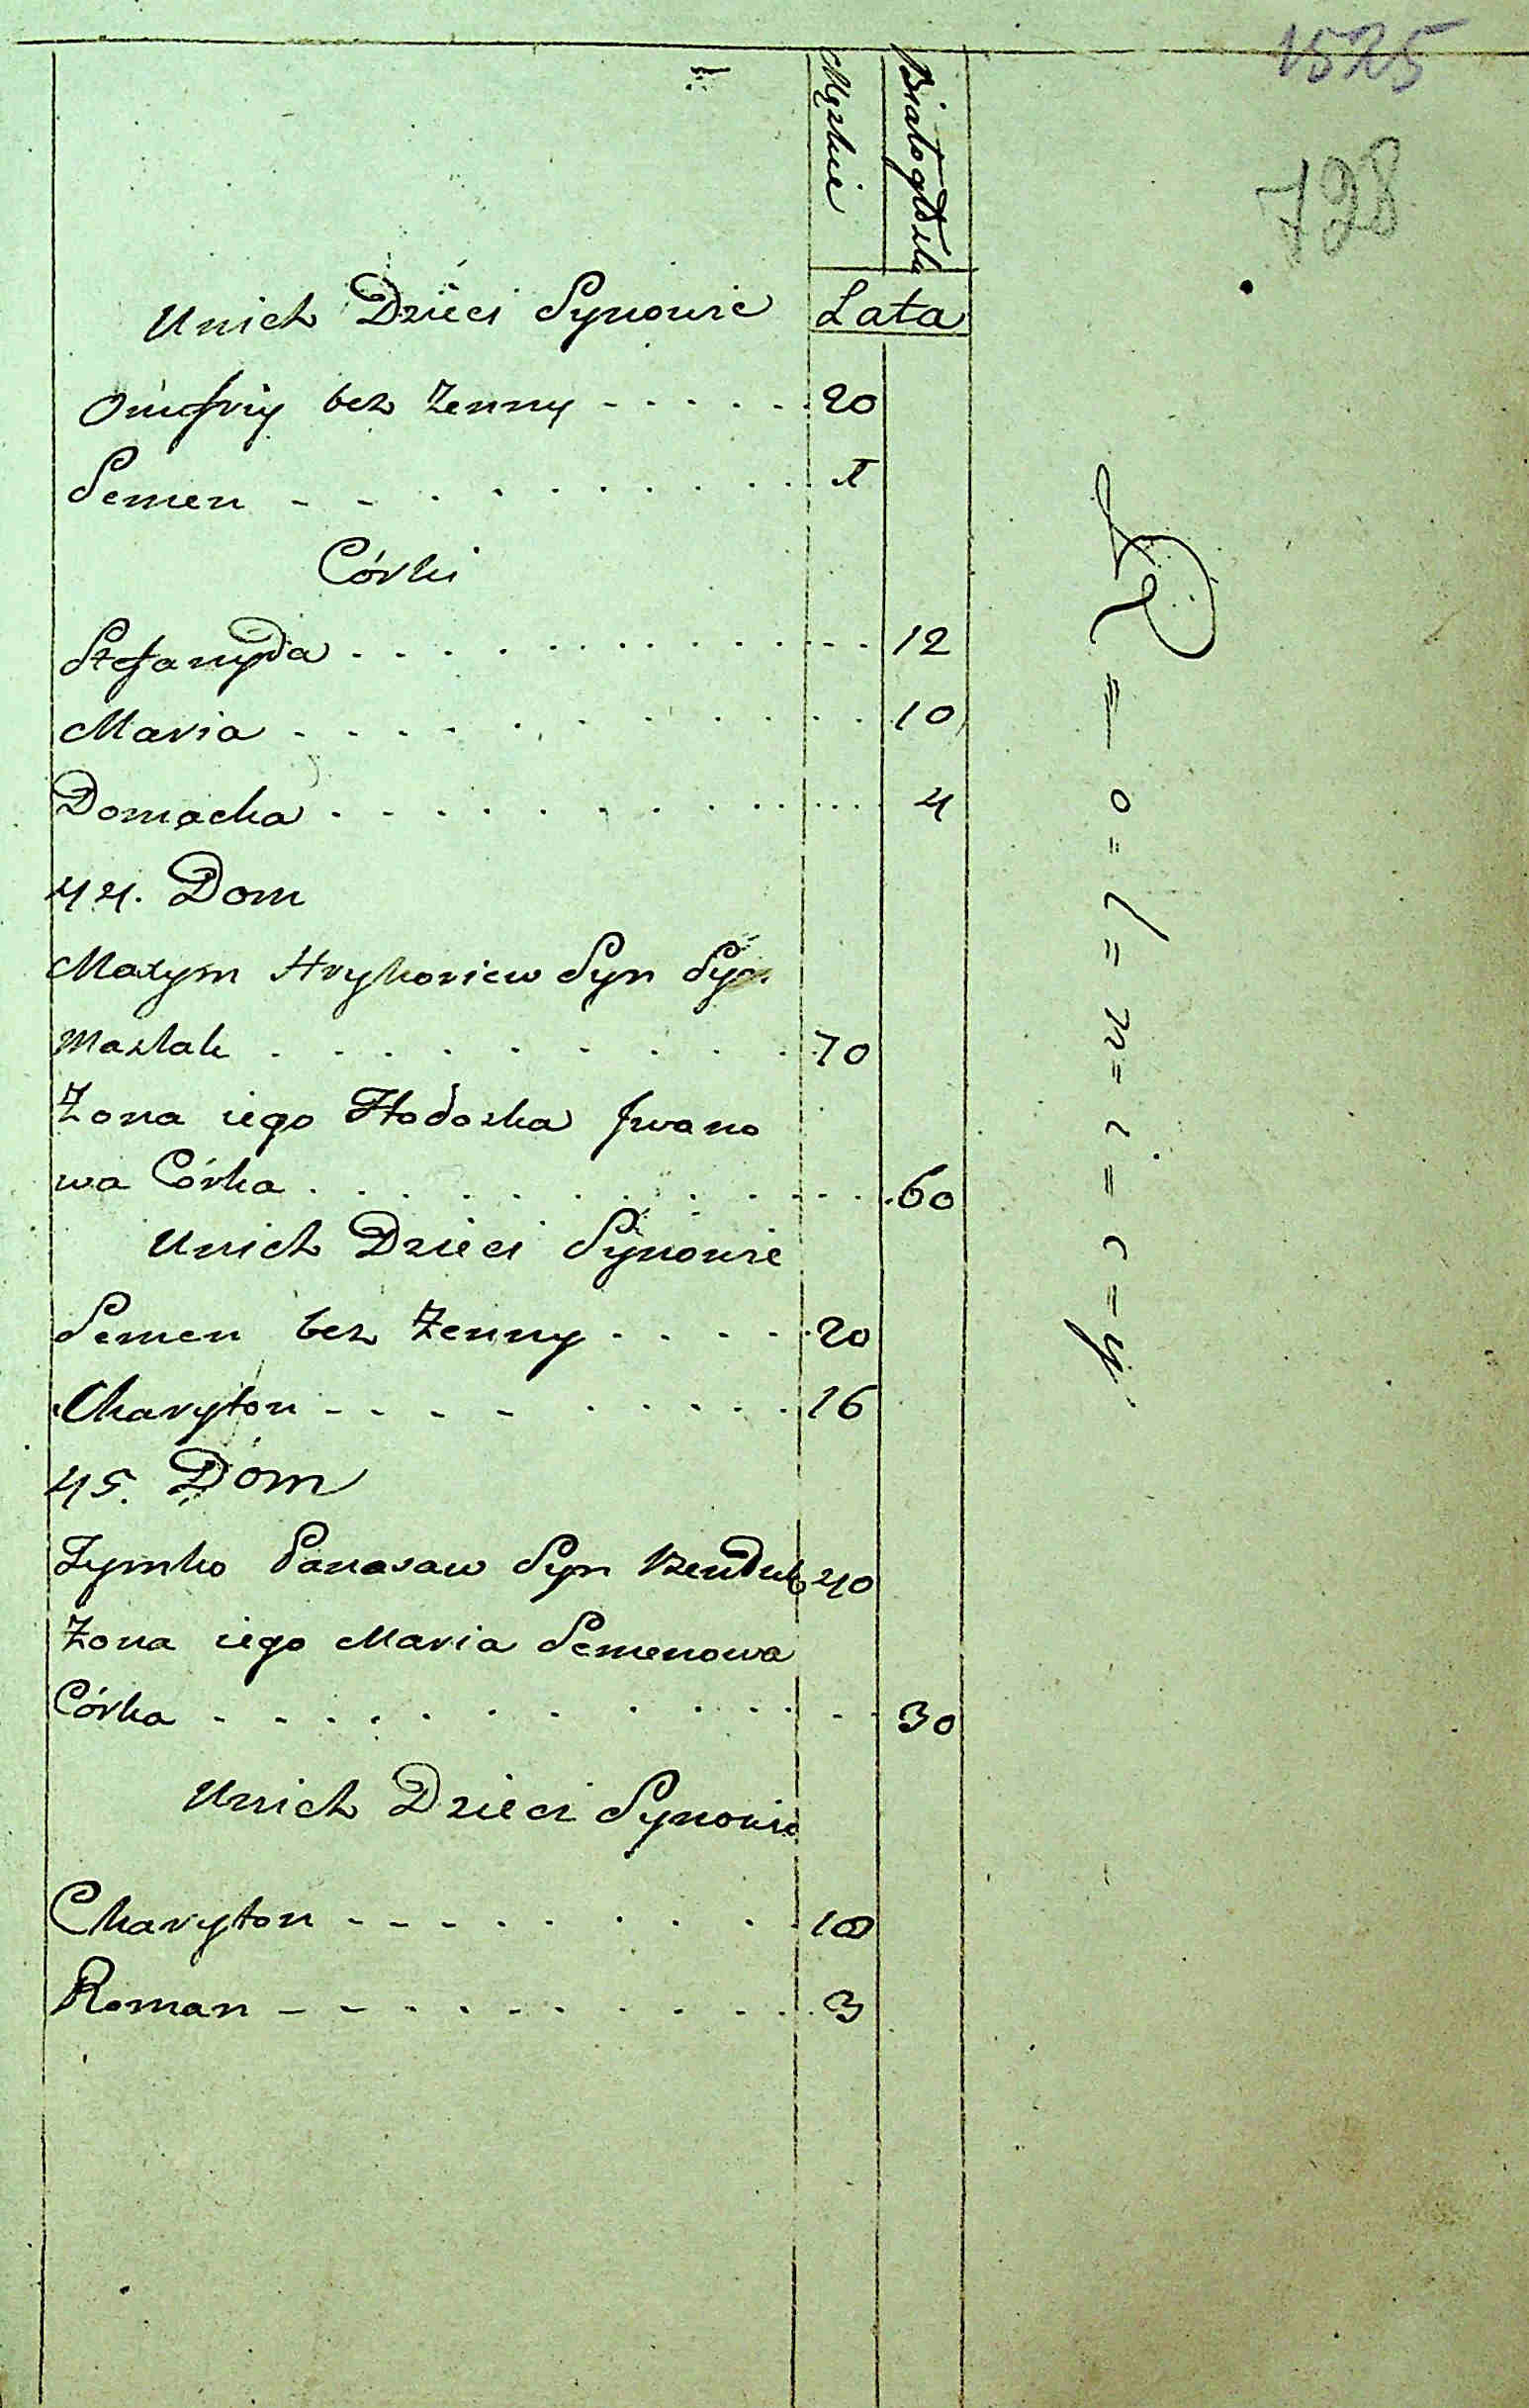 1525
728
Męzkie
Białogł:
Lata
Unich Dzieci Synowie
Onufriy bez Zenny - - - - - - 20
Semen - - - - - - - - - -
Córki
Stefanyda - - - - - - - - - - 12
Maria - - - - - - - - - - 10
Domacka - - - - - - - - - - 4
44. Dom
Maxym Hryhoriew Syn Syn
Maslak - - - - - - - - - - 70
Zona iego Hodoska Jwano
wa Córka - - - - - - - - - - 60
Unich Dzieci Synowie
Semen bez Zenny - - - - 20
Charyton - - - - - - - - - 16
45. Dom
Tymko Panasaw Syn 40
Zona iego Maria Semenowa
Córka - - - - - - - - - - 30
Unich Dzieci Synowie
Charyton - - - - - - - - -
Roman - - - - - - - - - - 3